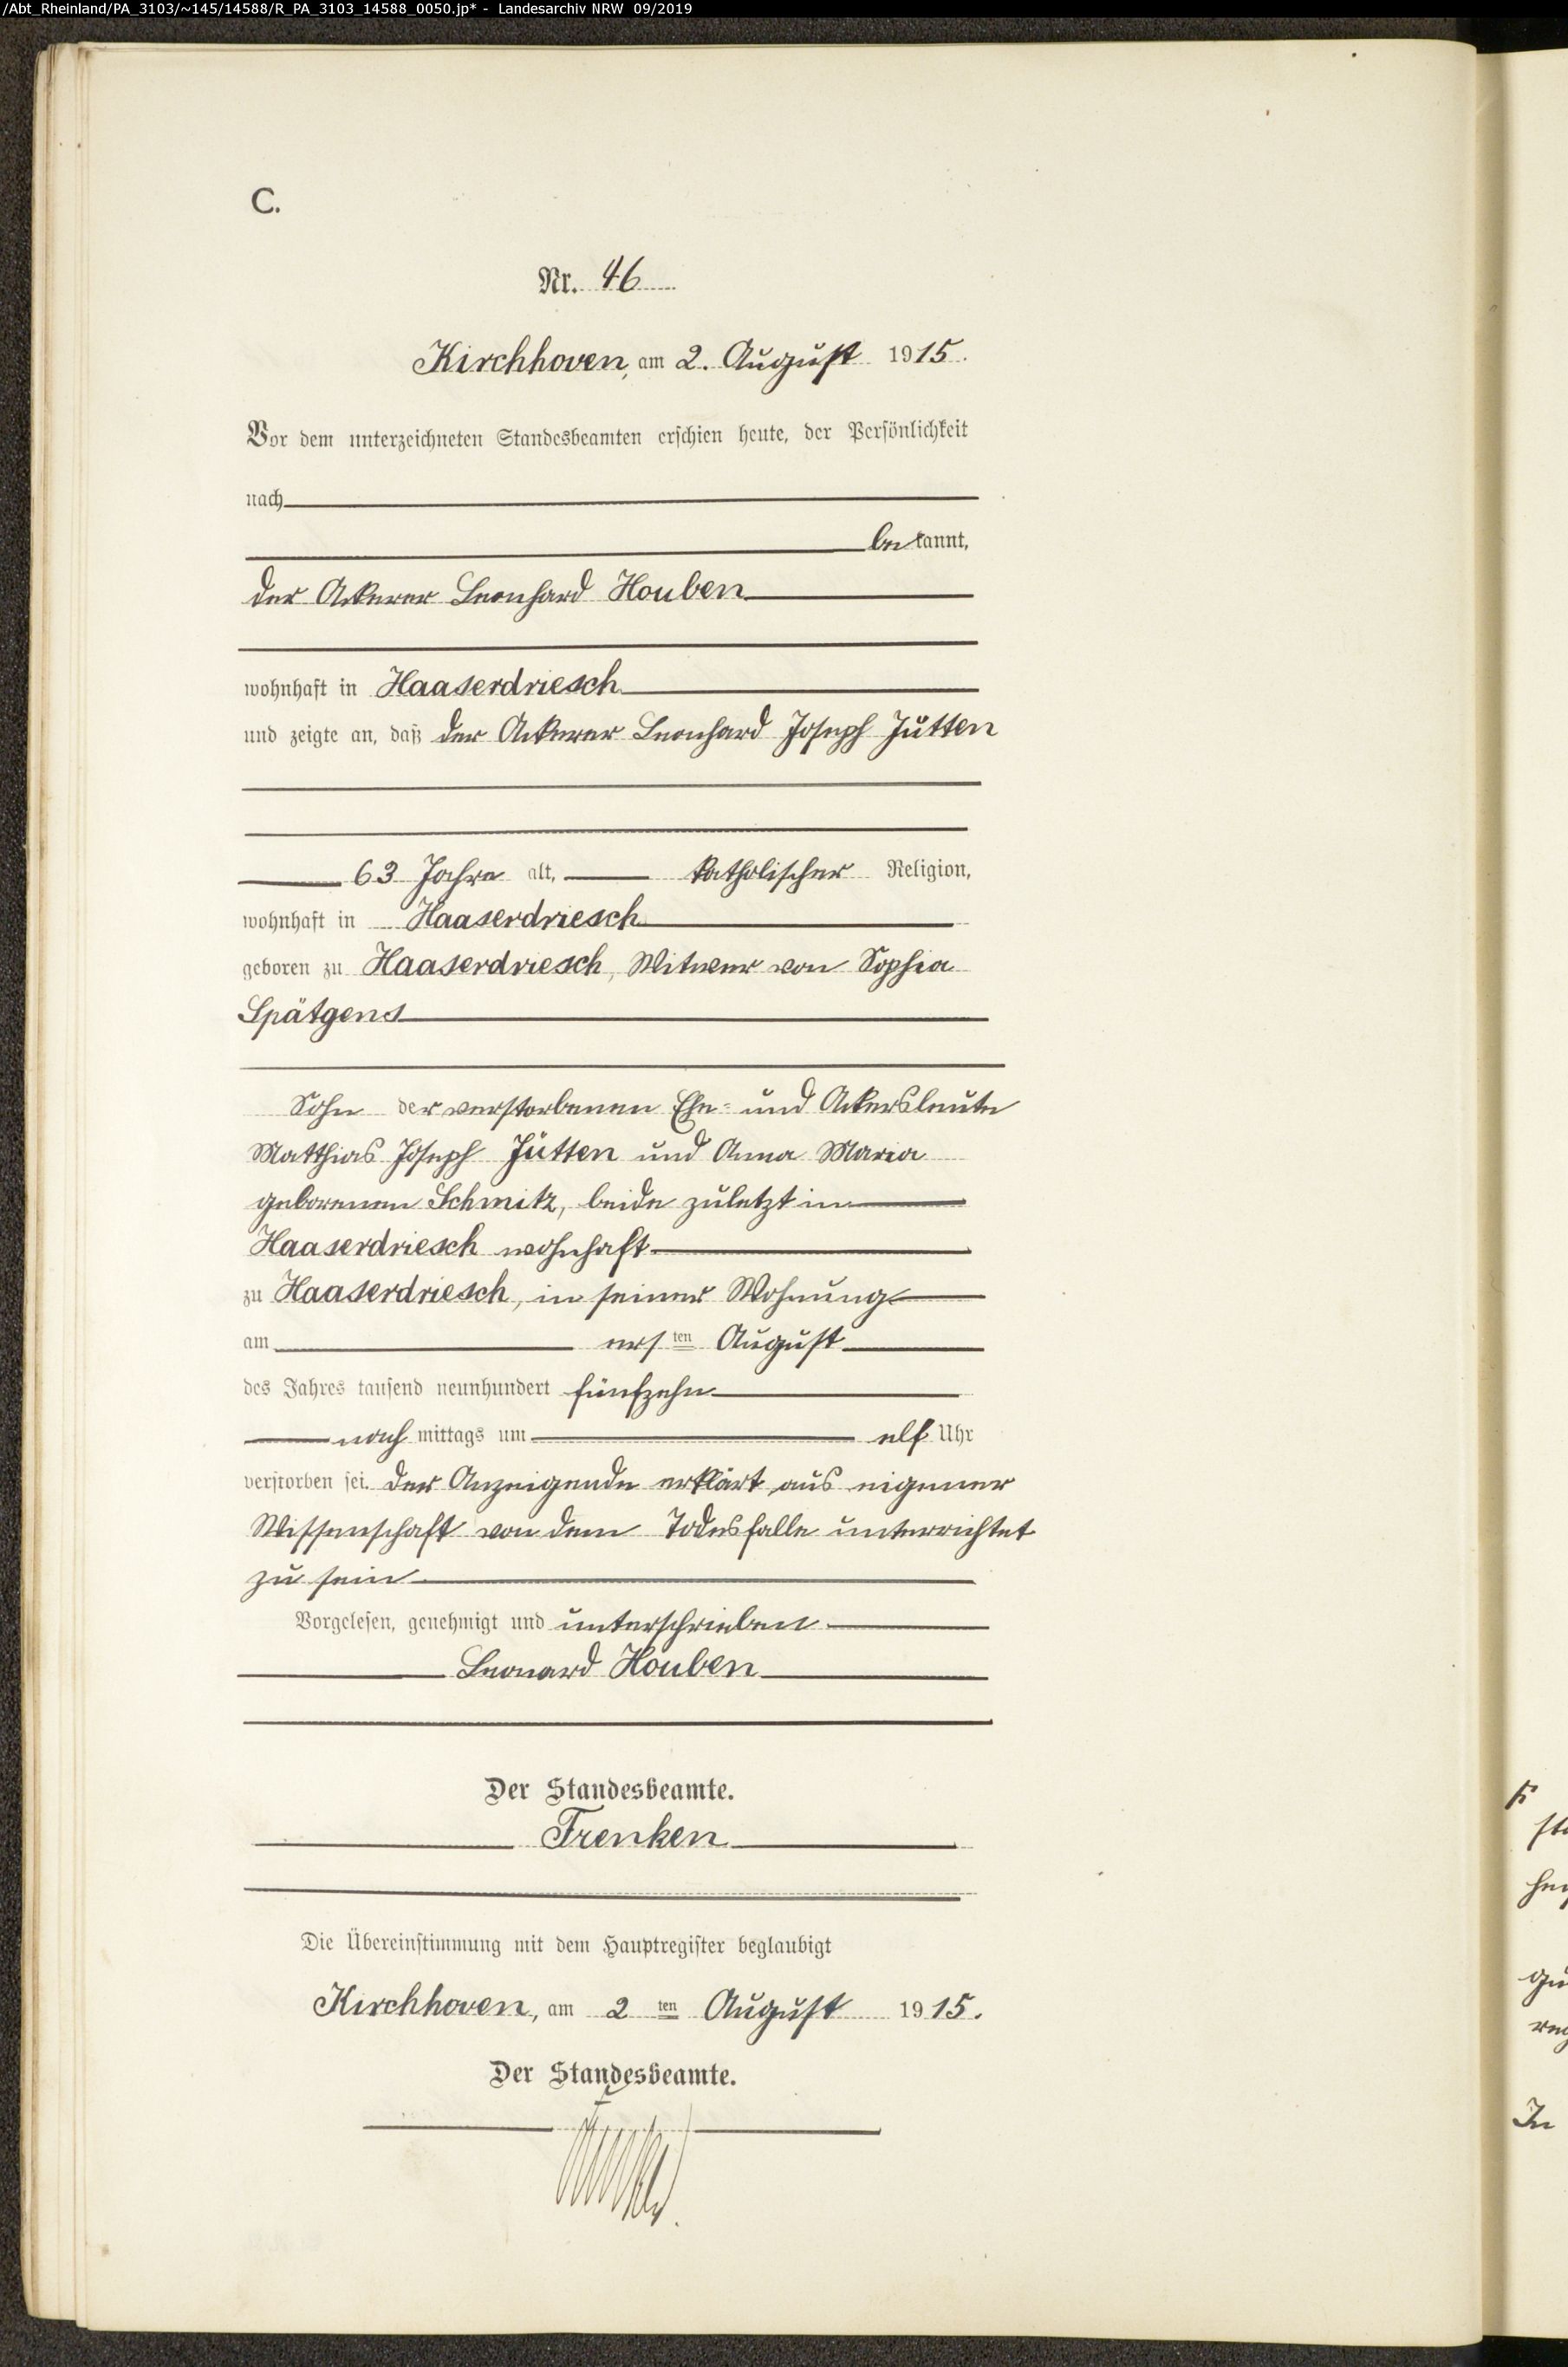 /Abt_Rheinland/PA_3103/~145/14588/R_PA_3103_14588_0050.jp* - Landesarchiv NRW 09/2019
C.
Nr. 46
Kirchhoven, am 2. August 1915.
Vor dem unterzeichneten Standesbeamten erschien heute, der Persönlichkeit
nach
bekannt,
der Ackerer Leonhard Houben
wohnhaft in Haaserdriesch
und zeigte an, daß der Ackerer Leonhard Joseph Jütten
63 Jahre alt, katholischer Religion,
wohnhaft in Haaserdriesch
geboren zu Haaserdriesch, Witwer von Sophia
Spätgens
Sohn der verstorbenen Ehe- und Ackersleute
Matthias Joseph Jütten und Anna Maria
geborenen Schmitz, beide zuletzt in
Haaserdriesch wohnhaft
zu Haaserdriesch, in seiner Wohnung
am ersten August
des Jahres tausend neunhundert fünfzehn
nach mittags um elf Uhr
verstorben sei. Der Anzeigende erklärt aus eigener
Wissenschaft von dem Todesfalle unterrichtet
zu sein
Vorgelesen, genehmigt und unterschrieben
Leonard Houben
Der Standesbeamte.
Frenken
Die Übereinstimmung mit dem Hauptregister beglaubigt
Kirchhoven, am 2 ten August 1915.
Der Standesbeamte.